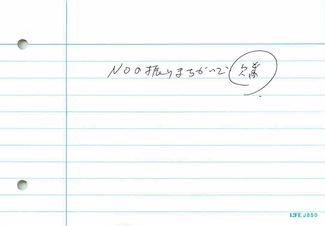 NOO振りまちがいで 欠番
LIFE J850